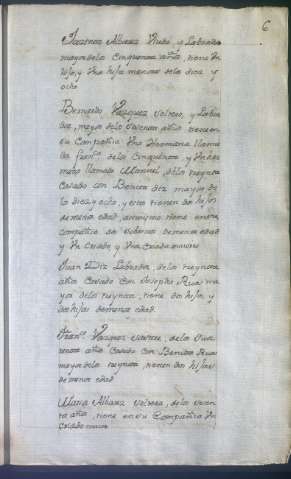 6
Albarez Viuda y Labrador
mayor de los Cinquenta años, tiene Un
hijo, y Una hija menores de los diez y
ocho
Benegildo Vazquez soltero, y Labra
dor, mayor de los Quarenta años tiene en
su Compañia Una Hermana llama
da Franca. de los Cinquenta, y Un her
mano llamado Manuel, de los treynta
Casado con Benita diz mayor de
los diez y ocho, y estos tienen dos hijos
de menor edad, assimismo tiene en otra
compañia dos sobrinos de menor edad
y Un Criado, y Una Criada menores
Juan Diz Labrador, de los treynta
años Casado con Josepha Rua ma
yor de los treynta, tiene dos hijos, y
dos hijas de menor edad
Franco. Vazquez de los Qua
renta años Casado con Benita Rua
mayor de los treynta, tienen dos hijos
de menor edad
Maria Albarez soltera, de los
ta años, tiene en su Compañia Un
Criado menor